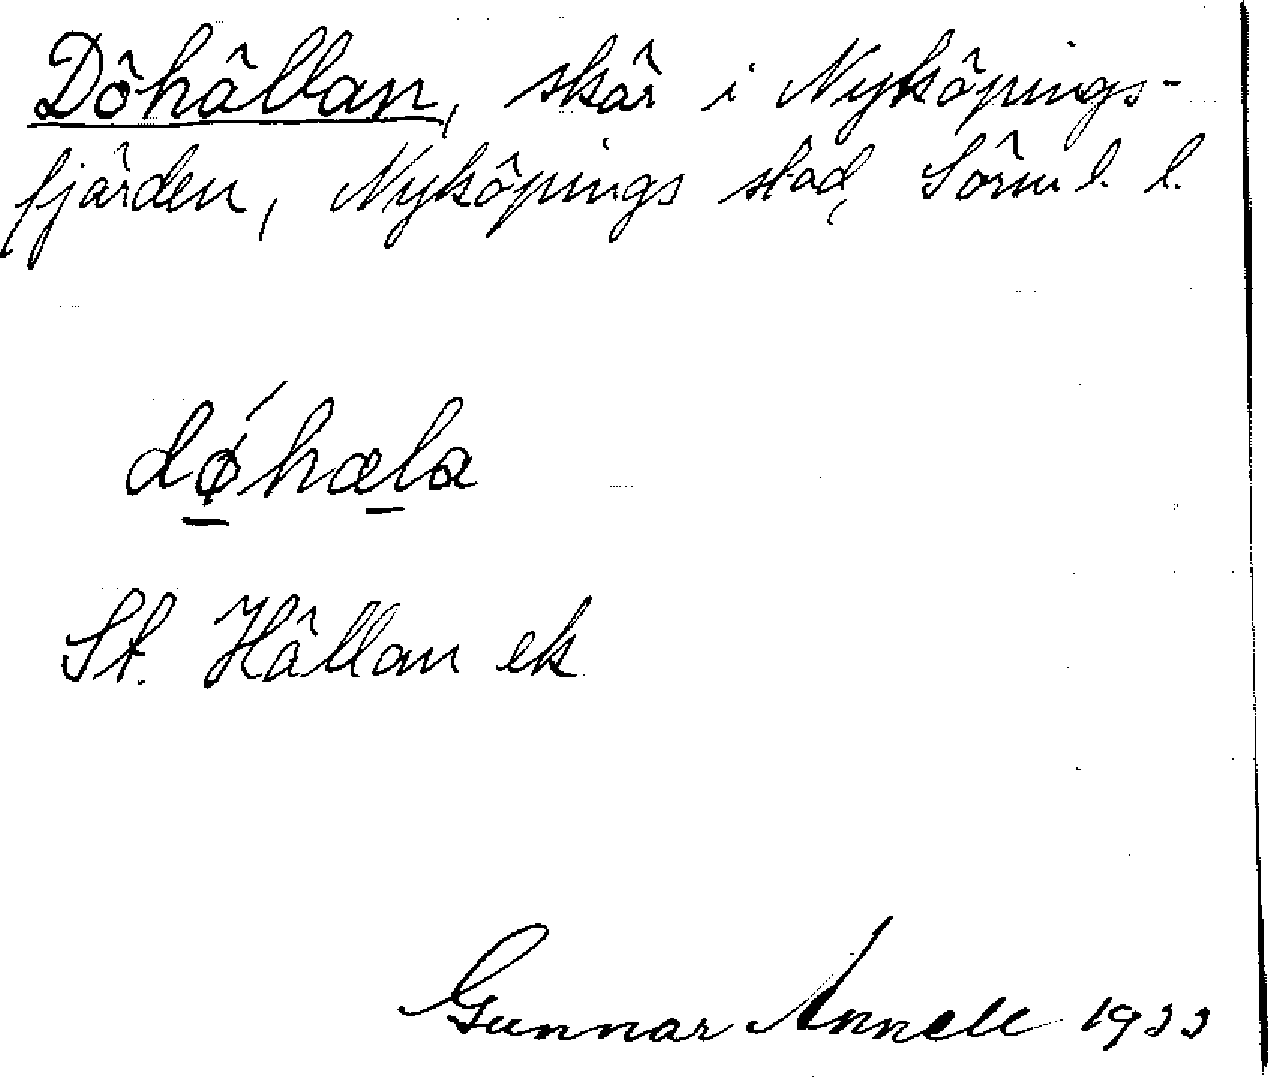 Döhällan, skär i Nyköpings-
fjärden, Nyköpings stad, Sörml. l.
dǿhæla
St. Hällan ek.
Gunnar Annell 1933